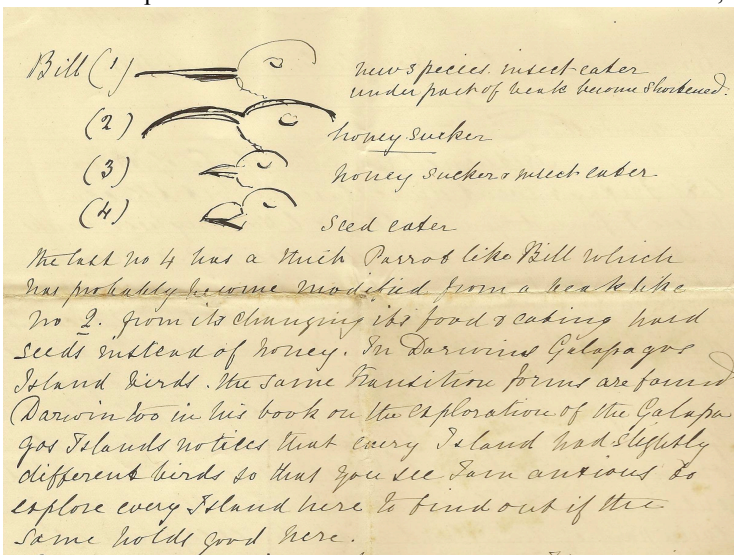 Bill (1) new species. insect eater
under part of beak become shortened.
(2) honey sucker
(3) honey sucker & insect eater
(4) seed eater
The last no 4 has a thick Parrot like Bill which
has probably become modified from a beak like
no 2. from its changing its food & eating hard
seeds instead of honey. In Darwins Galapagos
Island birds. the same transition forms are found
Darwin too in his book on the exploration of the Galapa
gos Islands notices that every Island had slightly
different birds so that you see I am anxious to
explore every Island here to find out if the
same holds good here.